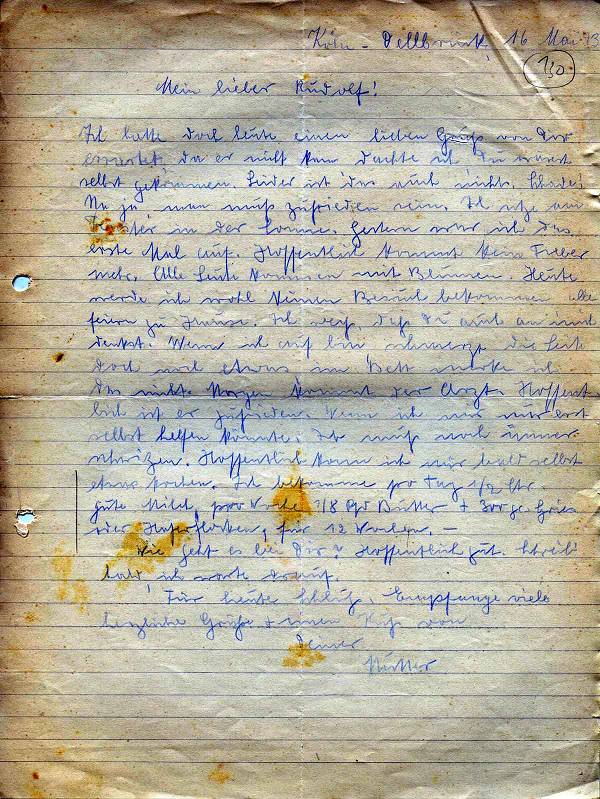 Köln-Dellbrück, 16 Mai 43
130.
Mein lieber Rudolf!
Ich hatte doch heute einen lieben Gruß von Dir
erwartet, da er nicht kam dachte ich Du wärst
selbst gekommen. Leider ist das auch nichts. Schade!
Na ja man muß zufrieden sein. Ich sitze am
Fenster in der Sonne. Gestern war ich das
erste Mal auf. Hoffentlich kommt kein Fieber
mehr. Alle Leute kommen mit Blumen. Heute
werde ich wohl keinen Besuch bekommen alle
feiern zu Hause. Ich weiß, daß Du auch an mich
denkst. Wenn ich auf bin schmerzt die Seite
doch noch etwas im Bett merke ich
das nicht. Morgen kommt der Arzt. Hoffent
lich ist er zufrieden. Wenn ich mir nur erst
selbst helfen könnte. Ich muß noch immer
schwitzen. Hoffentlich kann ich mir bald selbst
etwas kochen. Ich bekomme pro Tag 1/2 Ltr.
gute Milch, pro Woche 1/8 Pfd Butter + gr. Gries
oder Haferflocken, für 12 Wochen. —
Wie geht es bei Dir? Hoffentlich gut. Schreib
bald, ich warte darauf.
Für heute Schluß. Empfange viele
herzliche Grüße + einen Kuß von
Deiner
Mutter